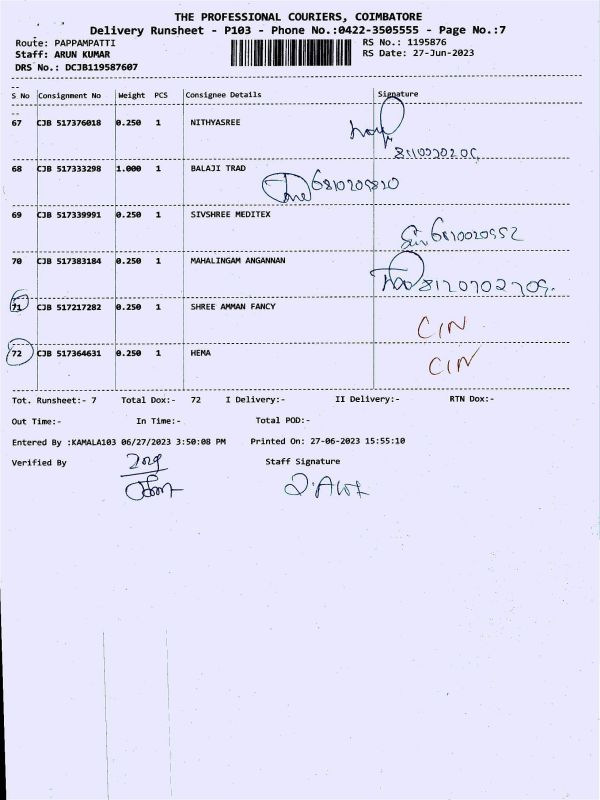 THE PROFESSIONAL COURIERS, COIMBATORE
Delivery Runsheet - P103 - Phone No.:0422-3505555 - Page No.:7
Route: PAPPAMPATTI RS No.: 1195876
Staff: ARUN KUMAR RS Date: 27-Jun-2023
DRS No.: DCJB119587607
S No Consignment No Weight PCS Consignee Details Signature
67 CJB 517376018 0.250 1 NITHYASREE
68 CJB 517333298 1.000 1 BALAJI TRAD
69 CJB 517339991 0.250 1 SIVSHREE MEDITEX
70 CJB 517383184 0.250 1 MAHALINGAM ANGANNAN
71 CJB 517217282 0.250 1 SHREE AMMAN FANCY CIN
72 CJB 517364631 0.250 1 HEMA CIN
Tot. Runsheet:- 7 Total Dox:- 72 I Delivery:- II Delivery:- RTN Dox:-
Out Time:- In Time:- Total POD:-
Entered By :KAMALA103 06/27/2023 3:50:08 PM Printed On: 27-06-2023 15:55:10
Verified By Staff Signature